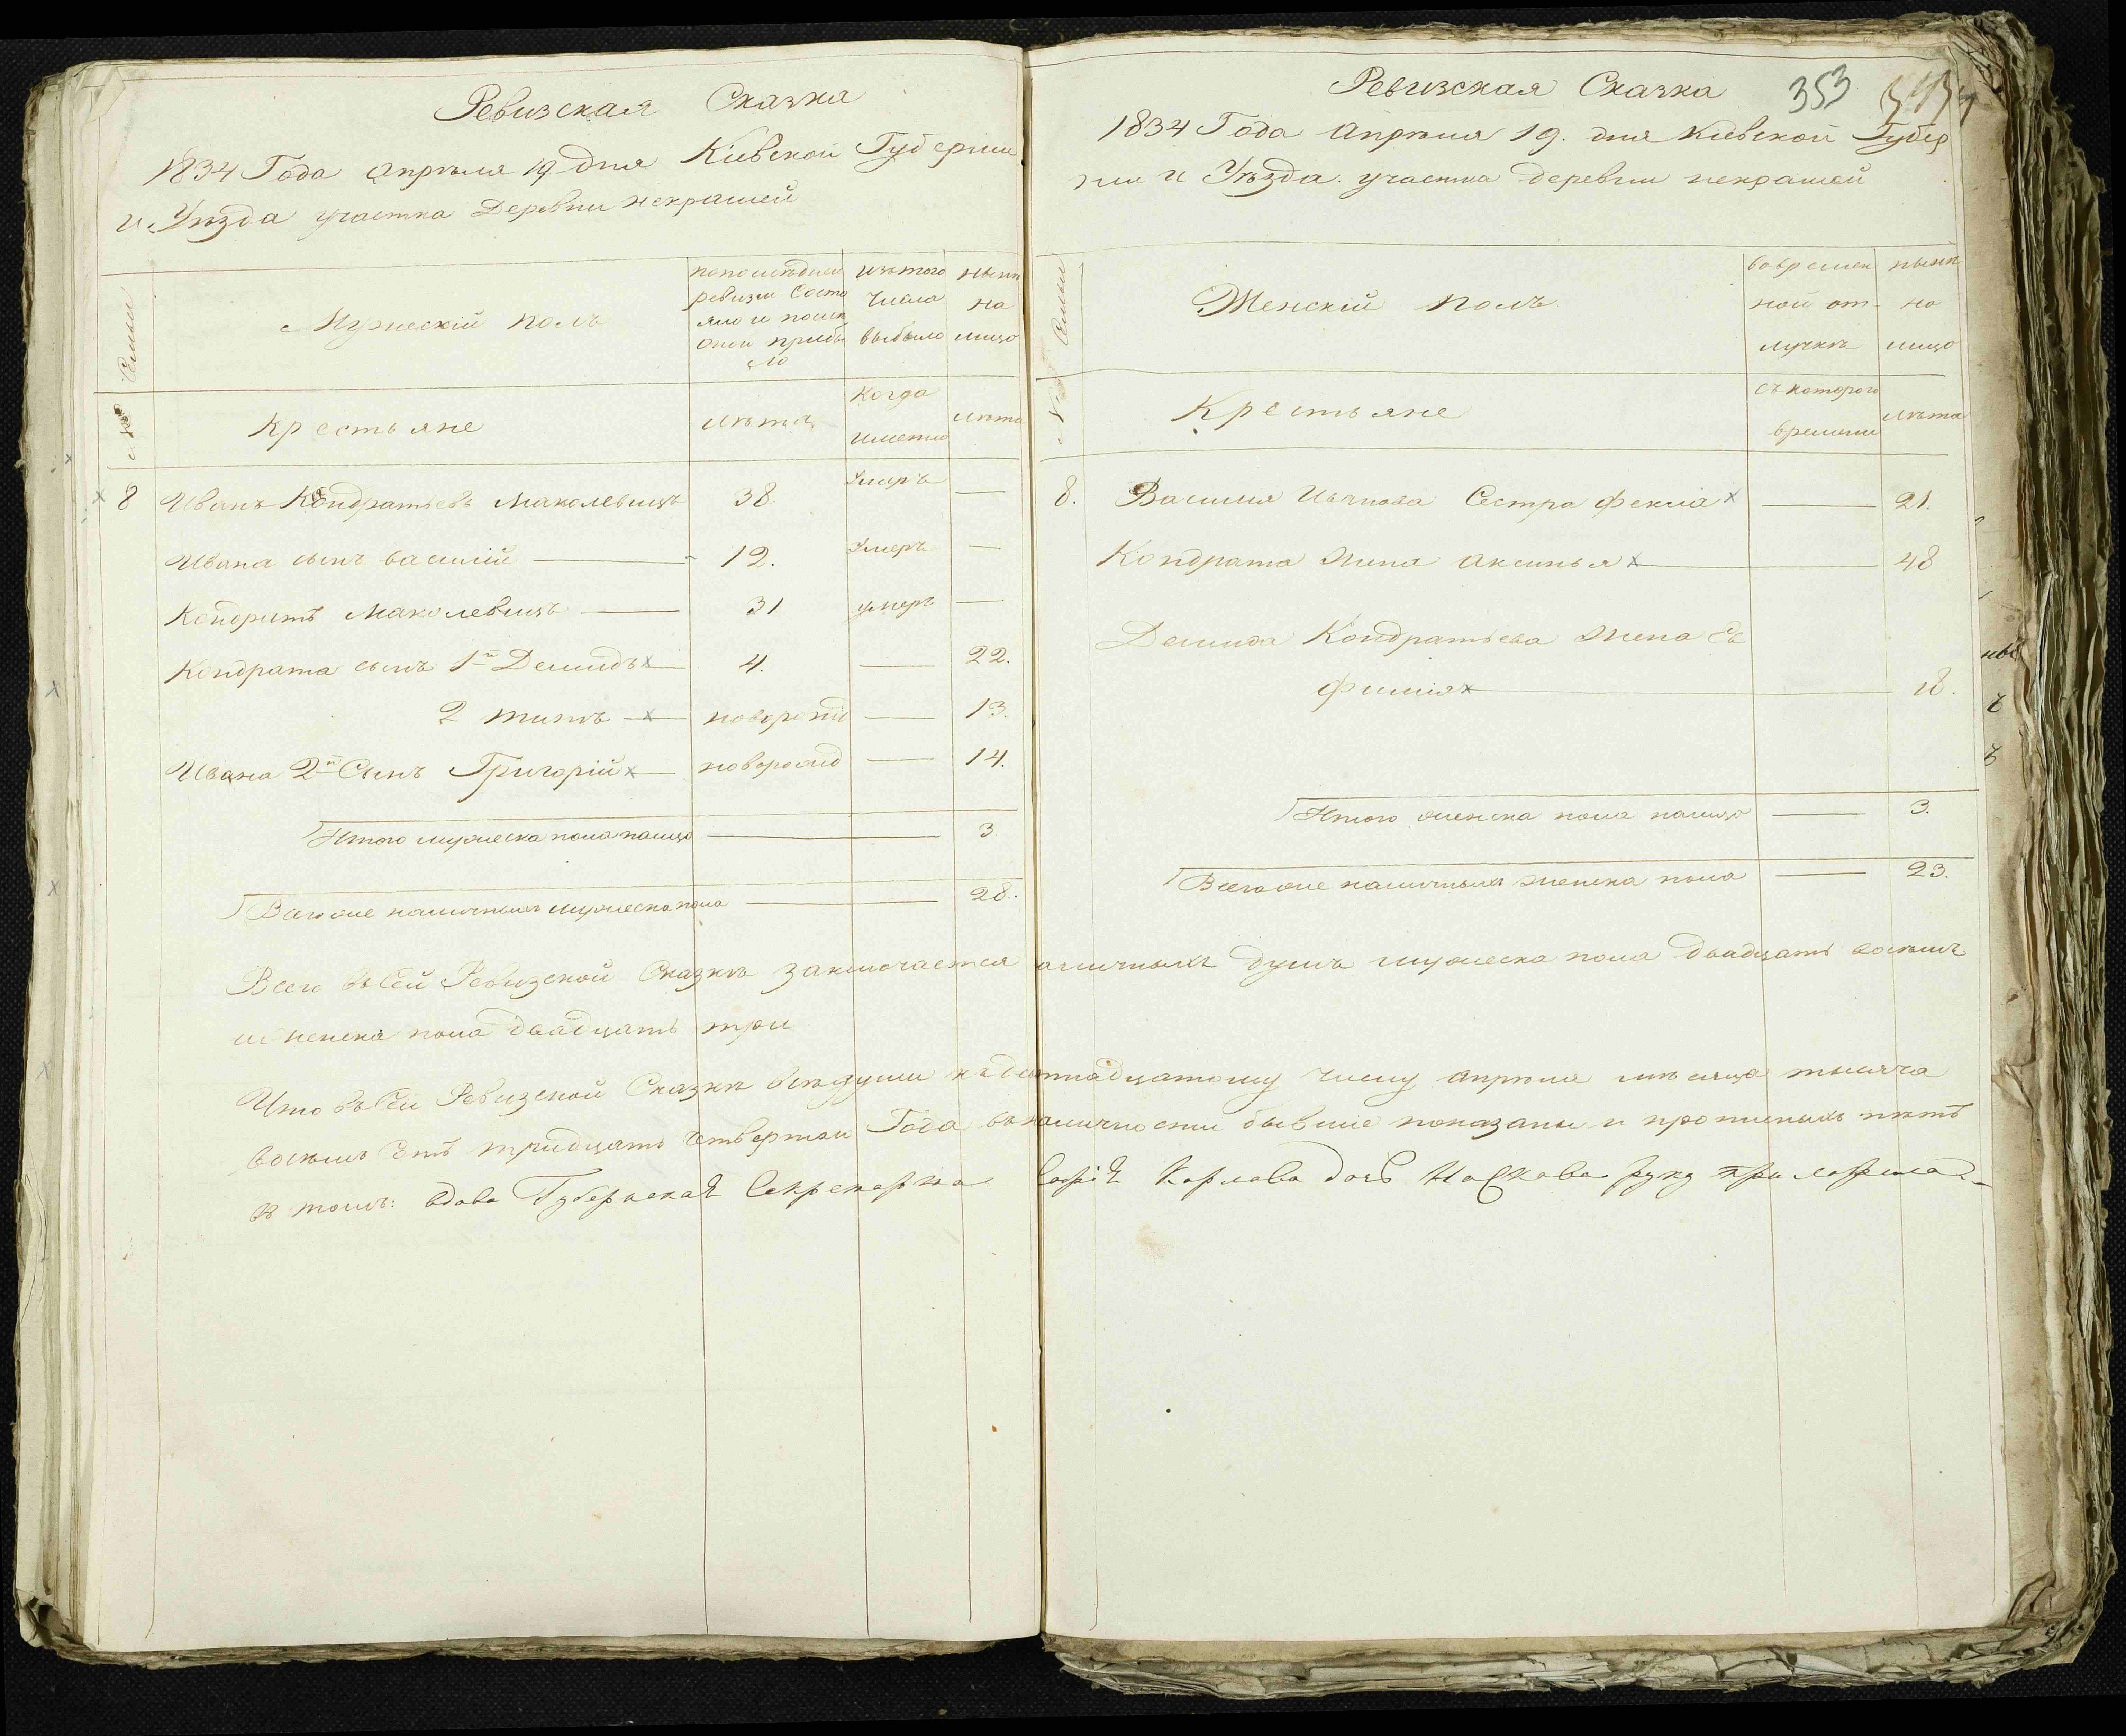 Ревизская Сказка
1834 Года апреля 19 дня Кіевской Губерніи
и Уѣзда участка Деревни некрашей
Семьи
Мужескій полъ
по последней ревизіи состояло и после оной прибыло
изъ того числа выбыло
нынѣ на лицо
№
Крестьяне
лѣта
Когда именно
лѣта
8 Иванъ Кондратьевъ Маколевичъ 38. Умеръ —
Ивана сынъ василій — 12. Умеръ —
Кондратъ Маколевичъ — 31 умеръ —
Кондрата сынъ 1й Демидъ x — 4. — 22.
2 титъ — x — новорожд — 13.
Ивана 2й Сынъ Григорій x — новорожд — 14.
Итого мужеска пола налицо — 3
Всего же наличныхъ мужеска пола — 28.
Ревизская Сказка
353
1834 Года апреля 19. дня Кіевской Губер
ніи и Уѣзда участка деревни некрашей
Семьи
Женскій полъ
во временной отлучкѣ
нынѣ на лицо
№
Крестьяне
съ котораго времени
лѣта
8. Василия Иванова Сестра Фекла x — 21.
Кондрата жена Аксинья x — 48
Демида Кондратьева жена Ев
фимія x — 18.
Итого женска пола налицо — 3.
Всего же наличныхъ женска пола — 23.
Всего въ Сей Ревизской Сказкѣ заключается наличныхъ душъ мужеска пола двадцать восемь
и женска пола двадцать три
Что въ Сей Ревизской Сказкѣ всѣ души къ девятнадцатому числу апреля мѣсяца тысяча
восемь Сотъ тридцать четвертаго Года въ наличности бывшіе показаны и прописныхъ нѣтъ
въ томъ: вдова Губернская Секретарша Софія Карлова дочь руку приложила